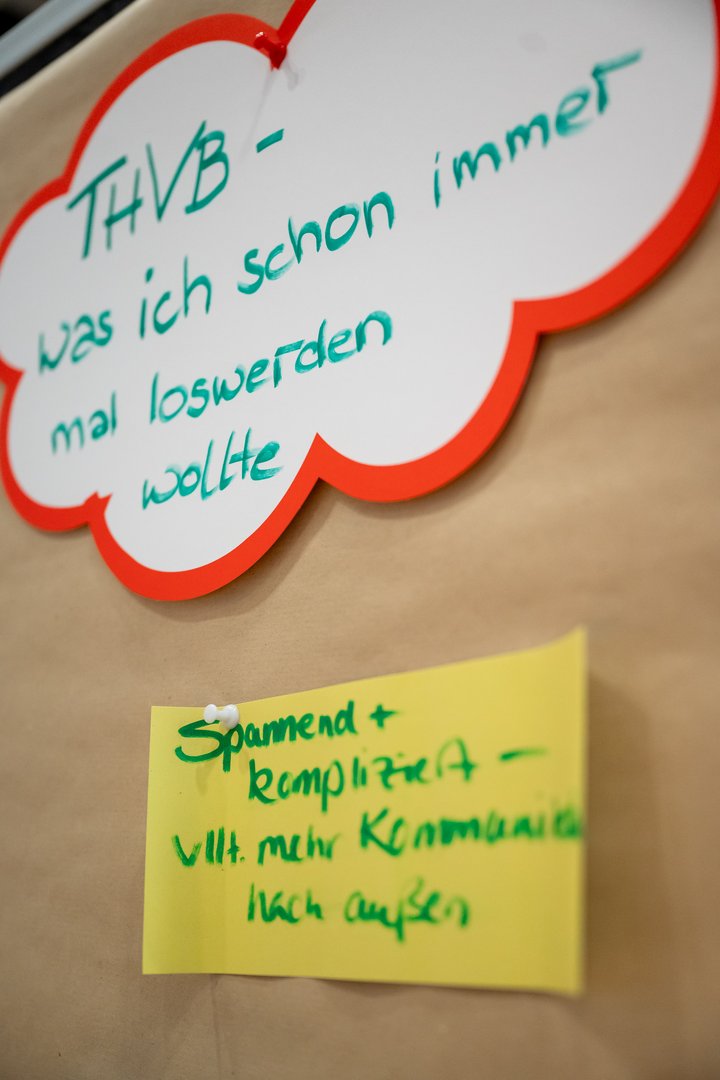 THVB -
was ich schon immer
mal loswerden
wollte
Spannend +
kompliziert -
vllt. mehr Kommunikation
nach außen